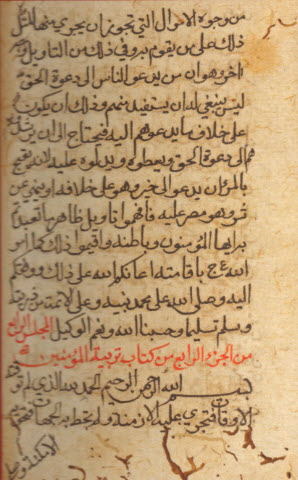 من وجوه الاموال التي تجوز ان يجرى منها لمثل
ذلك على من يقوم به وفي ذلك من التاويل وجه
اخر وهو ان من يدعو الناس الى دعوة الحق
ليس ينبغي له ان يستفيد منهم وذلك ان يكون
على خلاف ما يدعوهم اليه فيحتاج الى ان يرشد
هم الى دعوة الحق ويعطوه ويدلوه عليه لانه قبيح
بالمرء ان يدعو الى خير وهو على خلافه او ينهى عن
شر وهو مصر عليه فافهموا تاويل ظاهر ما تعبدتم
به ايها المؤمنون وباطنه واقيموا ذلك كما امر
الله عج باقامته اعانكم الله على ذلك ووفقكم
اليه وصلى الله على محمد نبيه وعلى الائمة من ذريته
وسلم تسليما وحسبنا الله ونعم الوكيل المجلس الرابع
من الجزو الرابع من كتاب تربية المؤمنين
بسم الله الرحمن الرحيم الحمد لله الذي لم
الاوقات فتجري عليه الازمنة ولم تحط به الجهات